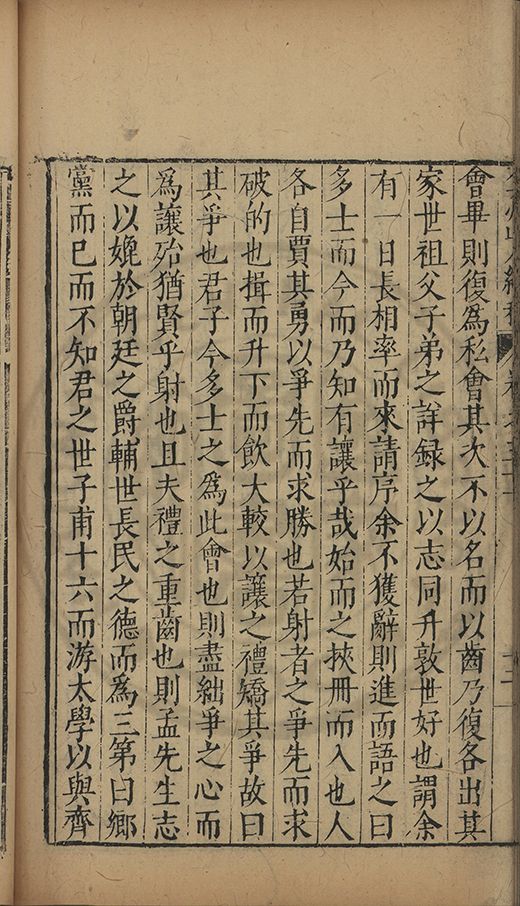 會畢則復為私會其次不以名而以齒乃復各出其
家世祖父子弟之詳録之以志同升敦世好也謂余
有一日長相率而來請序余不獲辭則進而語之曰
多士而今而乃知有讓乎哉始而之挾冊而入也人
各自賈其勇以爭先而求勝也若射者之爭先而求
破的也揖而升下而飲大較以讓之禮矯其爭故曰
其爭也君子今多士之為此會也則盡絀爭之心而
為讓殆猶賢乎射也且夫禮之重齒也則孟先生志
之以娩於朝廷之爵輔世長民之德而為三第曰鄉
黨而已而不知君之世子甫十六而游太學以與齊